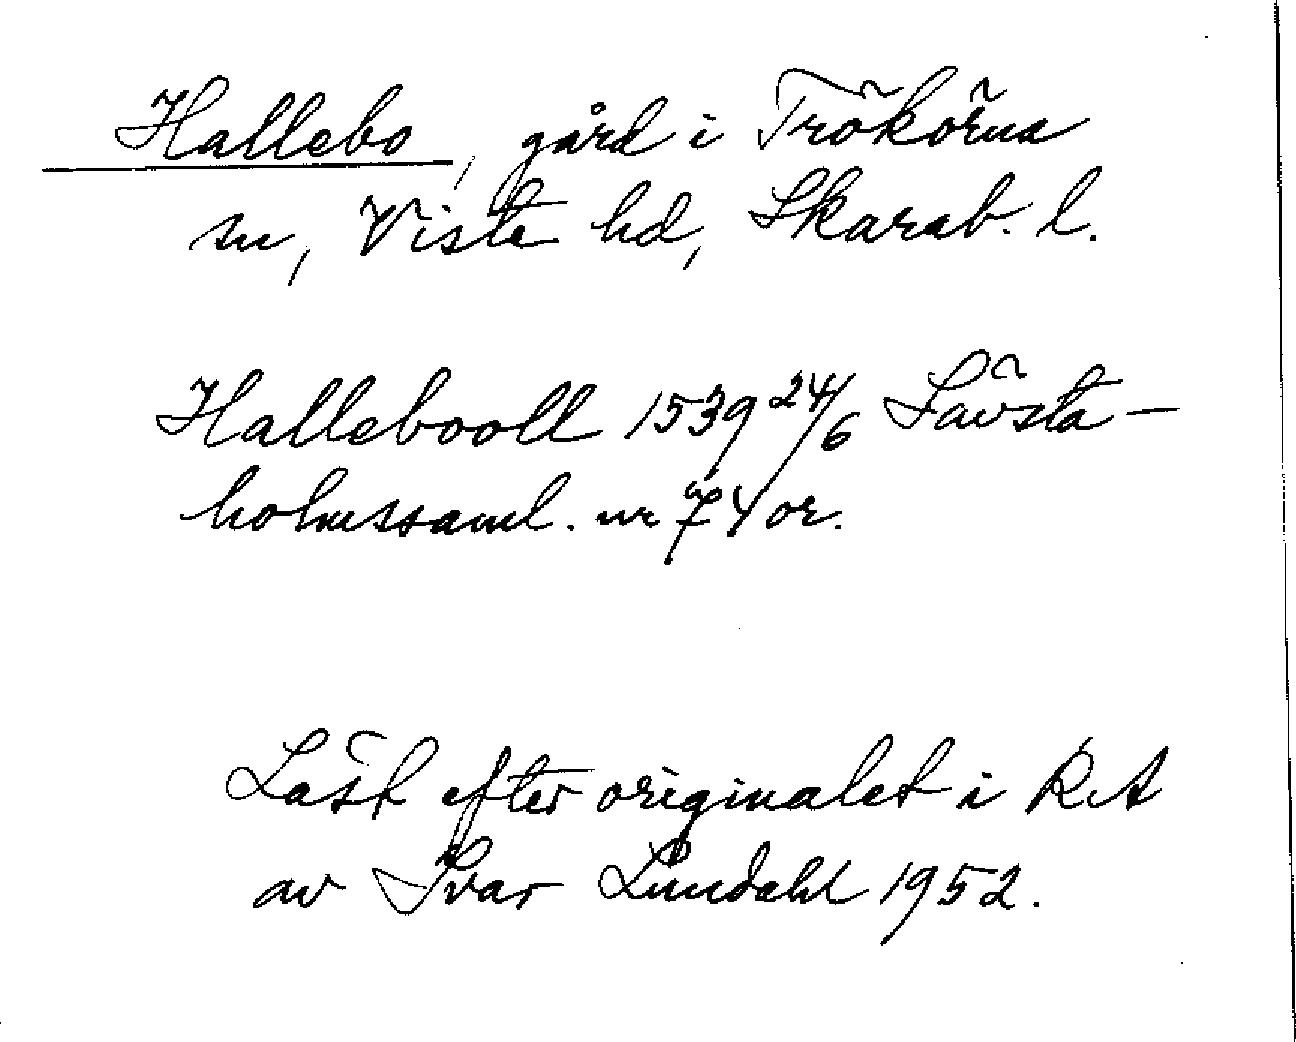 Hallebo, gård i Trökörna
sn, Viste hd, Skarab. l.
Hallebooll 1539 24/6 Sävsta-
holmssaml. nr 74 or.
Läst efter originalet i RA
av Ivar Lundahl 1952.